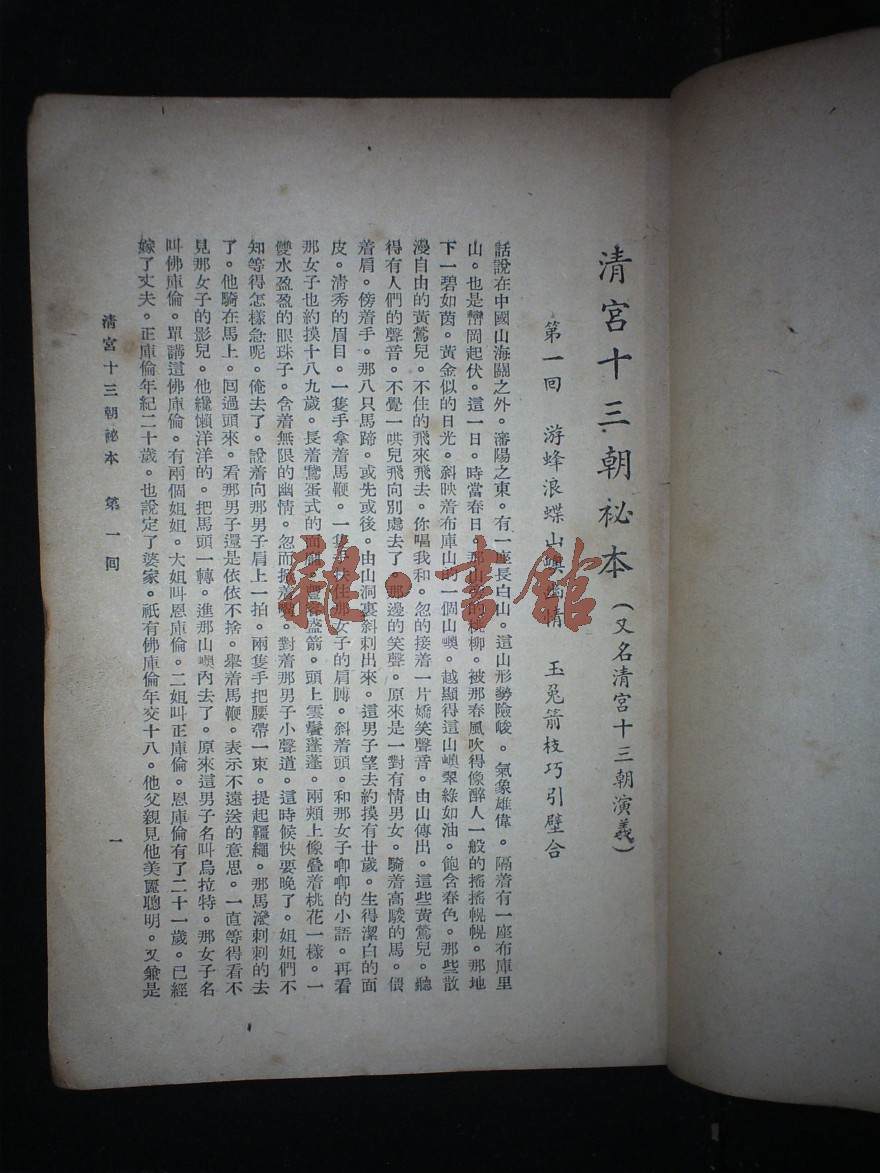 清宮十三朝祕本（又名清宮十三朝演義）
第一回　游蜂浪蝶山嶼幽情　玉兔箭枝巧引壁合
話說在中國山海關之外。瀋陽之東。有一座長白山。這山形勢險峻。氣象雄偉。隔着有一座布庫里
山。也是巒岡起伏。這一日。時當春日。那山的桃柳。被那春風吹得像醉人一般的搖搖幌幌。那地
下一碧如茵。黃金似的日光。斜映着布庫山的一個山嶼。越顯得這山嶼翠綠如油。飽含春色。那些散
漫自由的黃鶯兒。不住的飛來飛去。你唱我和。忽的接着一片嬌笑聲音。由山傳出。這些黃鶯兒。聽
得有人們的聲音。不覺一哄兒飛向別處去了。那邊的笑聲。原來是一對有情男女。騎着高駿的馬。偎
着肩。傍着手。那八只馬蹄。或先或後。由山洞裏斜刺出來。這男子望去約摸有廿歲。生得潔白的面
皮。清秀的眉目。一隻手拿着馬鞭。一隻手扶住那女子的肩膊。斜着頭。和那女子唧唧的小語。再看
那女子也約摸十八九歲。長着鵞蛋式的面龐。豐容盛鬋。頭上雲鬢蓬蓬。兩頰上像叠着桃花一樣。一
雙水盈盈的眼珠子。含着無限的幽情。忽而抿着嘴。對着那男子小聲道。這時候快要晚了。姐姐們不
知等得怎樣急呢。俺去了。說着向那男子肩上一拍。兩隻手把腰帶一束。提起韁繩。那馬潑刺刺的去
了。他騎在馬上。回過頭來。看那男子還是依依不捨。舉着馬鞭。表示不遠送的意思。一直等得看不
見那女子的影兒。他纔懶洋洋的。把馬頭一轉。進那山嶼內去了。原來這男子名叫烏拉特。那女子名
叫佛庫倫。單講這佛庫倫。有兩個姐姐。大姐叫恩庫倫。二姐叫正庫倫。恩庫倫有了二十一歲。已經
嫁了丈夫。正庫倫年紀二十歲。也說定了婆家。祇有佛庫倫年交十八。他父親見他美麗聰明。又兼是
清宮十三朝祕本　第一回　一
雜·書館